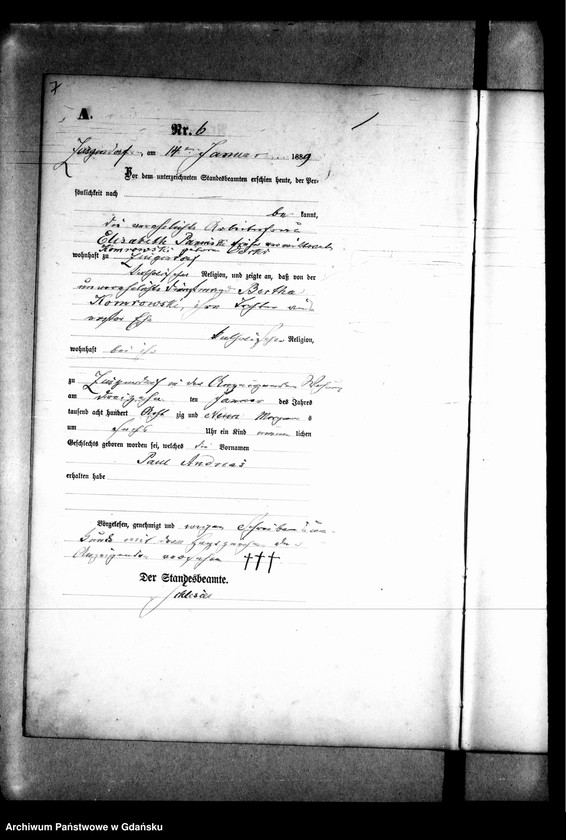 7
A.
Nr. 6
am 14ten Januar 1889
Vor dem unterzeichneten Standesbeamten erschien heute, der Per-
sönlichkeit nach
be kannt,
die verehelichte Arbeiterfrau
Elizabeth früher verwittwete
Komrowski geborene
wohnhaft zu
katholischer Religion, und zeigte an, daß von der
unverehelichte Dienstmagd Bertha
Komrowski, ihre Tochter aus
erster Ehe
katholischer Religion,
wohnhaft bei ihr
zu in der Anzeigenden Wohnung
am dreizehn ten Januar des Jahres
tausend acht hundert Acht zig und Neun Morgens
um sechs Uhr ein Kind männ lichen
Geschlechts geboren worden sei, welches die Vornamen
Paul Andreas
erhalten habe
Vorgelesen, genehmigt und wegen Schreibens un-
kunde mit dem Handzeichen der
Anzeigenden versehen †††
Der Standesbeamte.
Archiwum Państwowe w Gdańsku